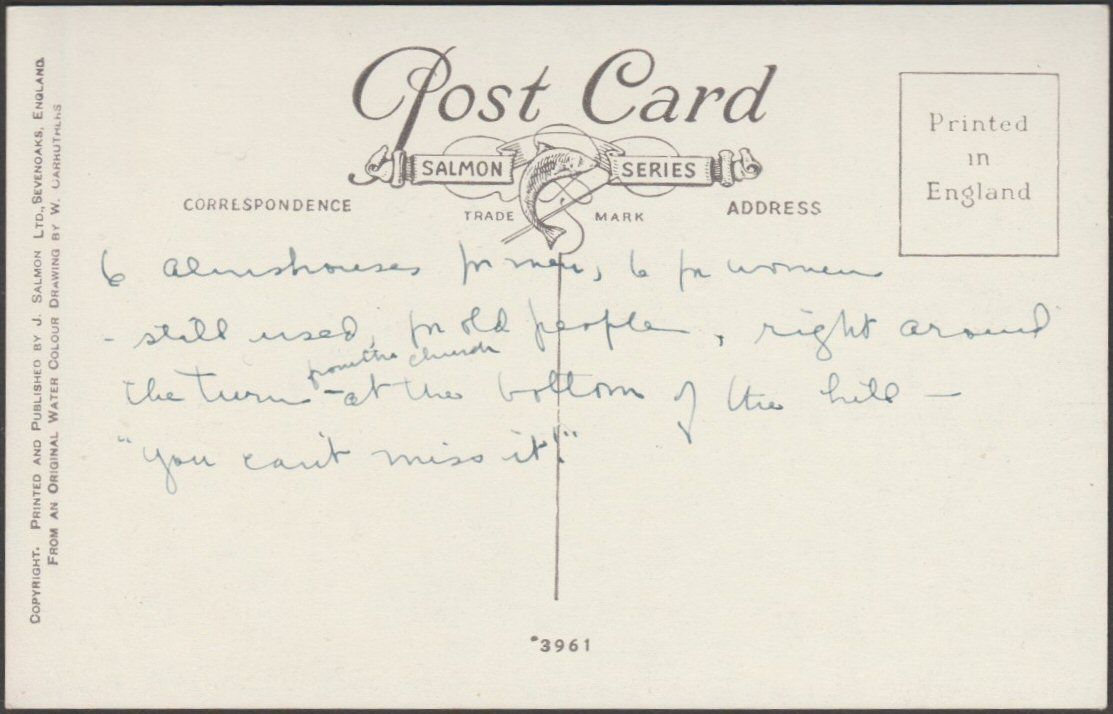 Post Card
SALMON SERIES
TRADE MARK
CORRESPONDENCE
ADDRESS
Printed
in
England
6 almshouses for men, 6 for women
- still used, for old people, right around
from the church
the turn - at the bottom of the hill —
"you can't miss it!"
*3961
COPYRIGHT. PRINTED AND PUBLISHED BY J. SALMON LTD., SEVENOAKS, ENGLAND.
FROM AN ORIGINAL WATER COLOUR DRAWING BY W. CARRUTHERS